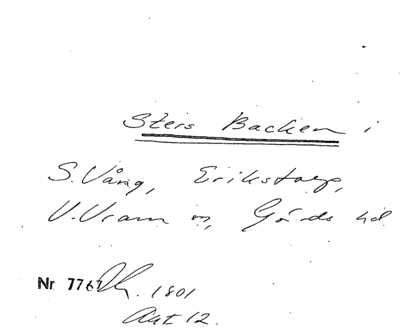 Steis Backen i
S. Vång, Erikstorp,
V. Vram o, Gärds hd
Nr 776
1801
Akt 12.